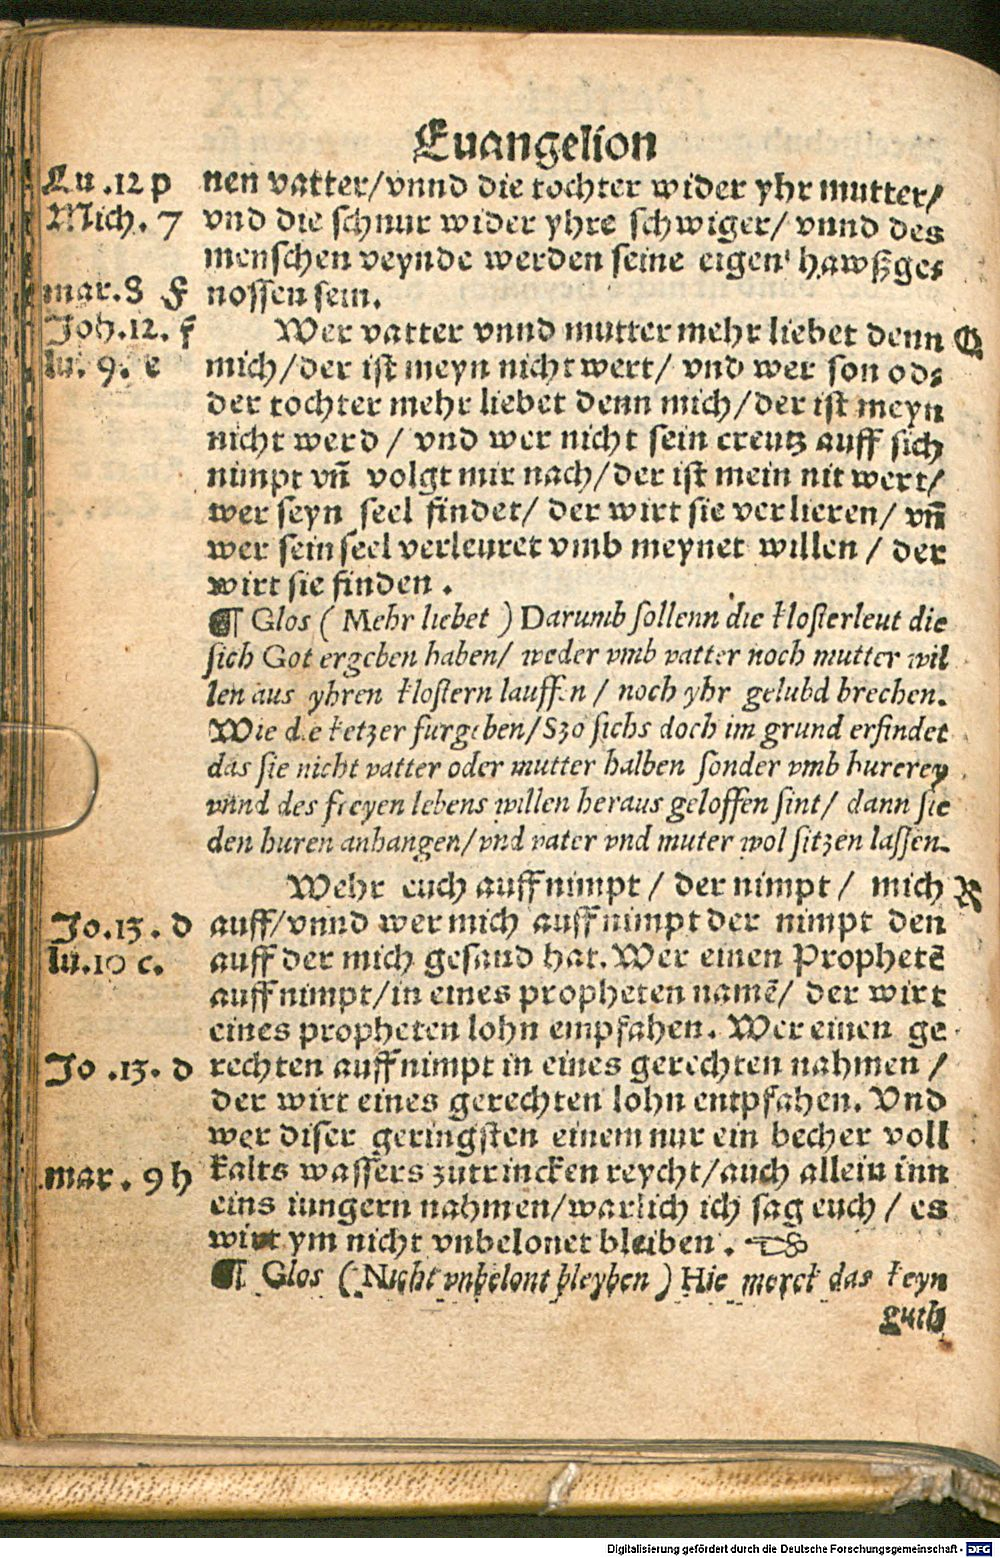 Euangelion
Lu .12 p nen vatter/vnnd die tochter wider yhr mutter/
Mich. 7 vnd die schnur wider yhre schwiger/ vnnd des
menschen veynde werden seine eigen hawßges
mar.8 F nossen sein.
Joh.12. f Wer vatter vnnd mutter mehr liebet denn Q
lu. 9. e mich/der ist meyn nicht wert/ vnd wer son od⸗
der tochter mehr liebet denn mich/der ist meyn
nicht werd / vnd wer nicht sein creutz auff sich
nimpt vñ volgt mir nach/der ist mein nit wert/
wer seyn seel findet/ der wirt sie verlieren/ vñ
wer sein seel verleuret vmb meynet willen / der
wirt sie finden .
¶ Glos ( Mehr liebet ) Darumb sollenn die klosterleut die
sich Got ergeben haben/ weder vmb vatter noch mutter wil
len aus yhren klostern lauffen / noch yhr gelubd brechen.
Wie die ketzer furgeben/Szo sichs doch im grund erfindet
das sie nicht vatter oder mutter halben sonder vmb hurerey
vnnd des freyen lebens willen heraus geloffen sint/ dann sie
den huren anhangen/vnd vater vnd muter wol sitzen lassen.
Wehr euch auffnimpt / der nimpt / mich R
Jo.13. d auff/vnnd wer mich auffnimpt der nimpt den
lu.10 c. auff der mich gesand hat. Wer einen Prophetē
auffnimpt/in eines propheten namē/ der wirt
eines propheten lohn empfahen. Wer einen ge
Jo .13. d rechten auffnimpt in eines gerechten nahmen /
der wirt eines gerechten lohn entpfahen. Vnd
wer diser geringsten einem nur ein becher voll
mar. 9 h kalts wassers zutrincken reycht/auch allein inn
eins iungern nahmen/warlich ich sag euch / es
wirt ym nicht vnbelonet bleiben . ☜
¶ Glos ( Nicht vnbelont bleyben ) Hie merck das keyn
guth
Digitalisierung gefördert durch die Deutsche Forschungsgemeinschaft - DFG